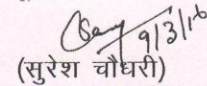 9/3/16
(सुरेश चौधरी)